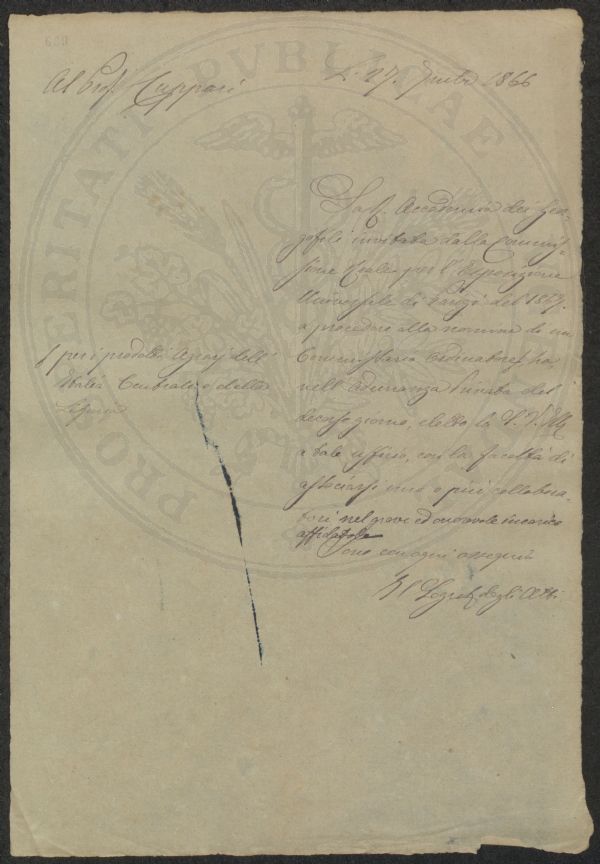 Al Prof. Cuppari
Li 27. 1866
La R. Accademia dei Geor-
gofili invitata dalla Commis-
sione Reale per l'Esposizione
Universale di Parigi del 1867.
a procedere alla nomina di un
Commissario Ordinatore, ha,
nell'Adunanza tenuta del
decorso giorno, eletto la S. V. Ill
a tale ufficio, con la facoltà di
associarsi uno o più collabora-
tori nel grave ed onorevole incarico
affidatole
Sono con ogni ossequio
Il Segret. degli Atti
per i prodotti Agrarj dell'
Italia Centrale e della
Liguria
PROSPERITATI PVBLICAE